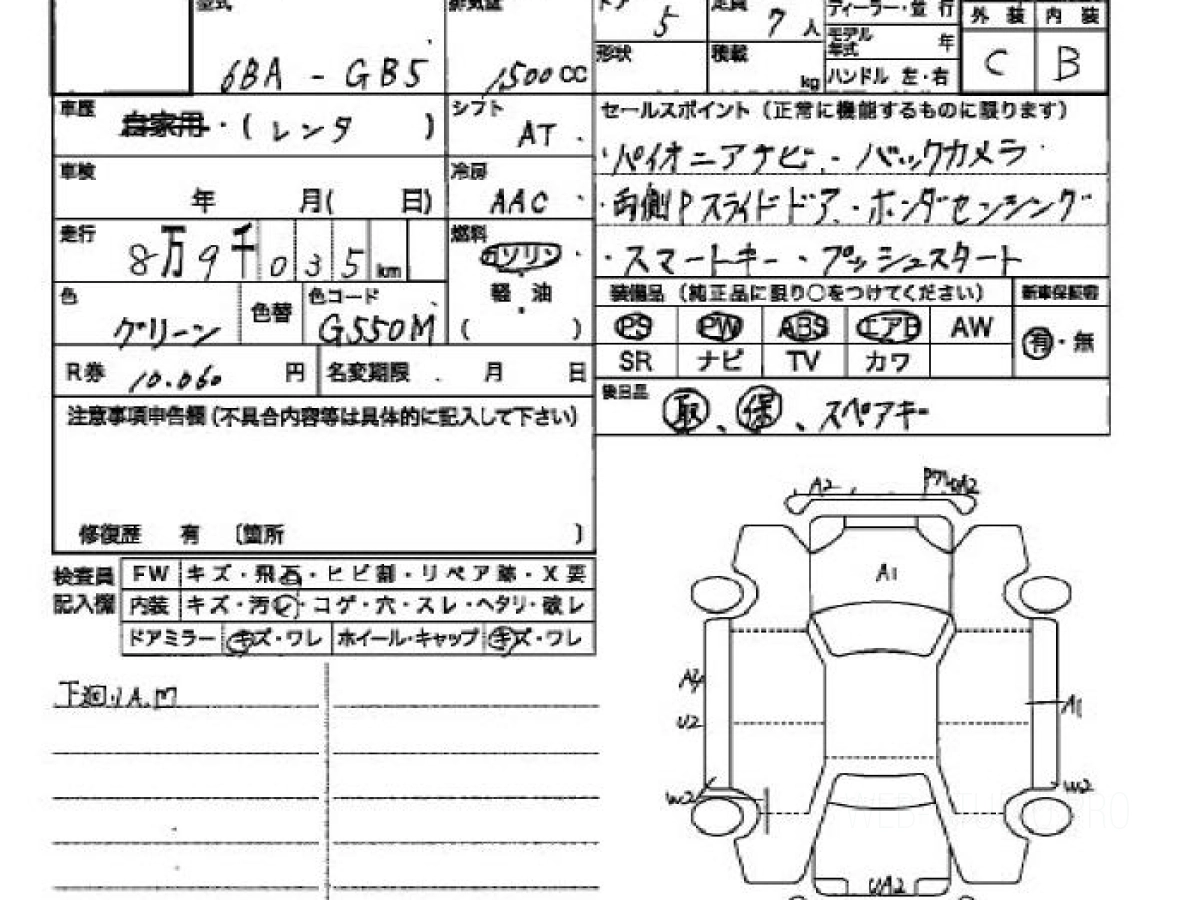 型式 排気量 ドア 5 定員 7 人 ディーラー・並行 外装 内装
6BA - GB5 1500 CC 形状 積載 kg モデル年式 年 C B
ハンドル 左・右
車歴 自家用・(レンタ ) シフト AT セールスポイント (正常に機能するものに限ります)
・パイオニアナビ・バックカメラ
車検 年 月( 日) 冷房 AAC ・両側Pスライドドア・ホンダセンシング
走行 8万9千035km 燃料 ガソリン ・スマートキー・プッシュスタート
軽油
( )
色 グリーン 色替 色コード G550M
装備品 (純正品に限り○をつけてください) 新車保証書
PS PW ABS エアB AW 有・無
SR ナビ TV カワ
R券 10.060 円 名変期限 月 日
後日品 取、保、スペアキー
注意事項申告欄(不具合内容等は具体的に記入して下さい)
修復歴 有 〔箇所 〕
検査員記入欄
FW キズ・飛石・ヒビ割・リペア跡・X要
内装 キズ・汚レ・コゲ・穴・スレ・ヘタリ・破レ
ドアミラー キズ・ワレ ホイール・キャップ キズ・ワレ
下廻り
A2
A1
U2 A1
W2 W2
UA2